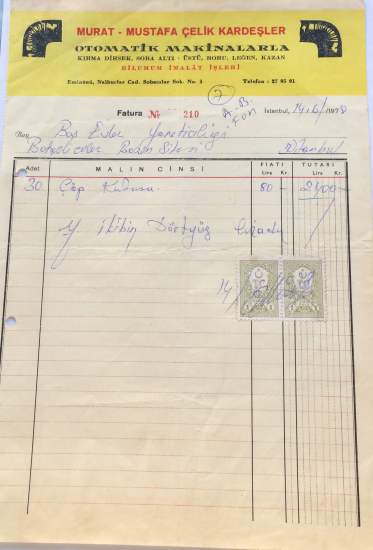 MURAT - MUSTAFA ÇELİK KARDEŞLER
OTOMATİK MAKİNALARLA
KIRMA DİRSEK, SOBA ALTI - ÜSTÜ, BORU, LEĞEN, KAZAN
BİLUMUM İMALÂT İŞLERİ
Eminönü, Nalburlar Cad. Sobacılar Sok. No. 1 Telefon : 27 05 01
7
Fatura № 210
İstanbul, 14/6/1978
Bay Evler Yöneticiliği
Bahçelievler Basın Sitesi İstanbul
Adet MALIN CİNSİ FİATI TUTARI
Lira Kr. Lira Kr.
30 Çöp Kutusu 80 - 2400 -
Y İkibin Dörtyüz liradır
T.C. T.C.
14/